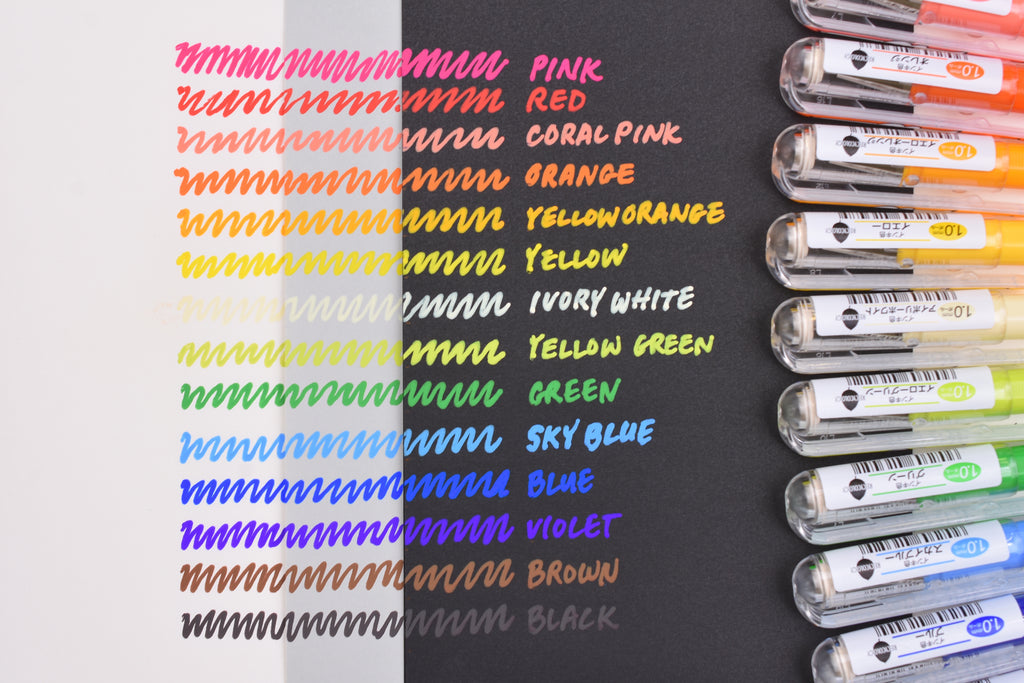 PINK
RED
CORAL PINK
ORANGE
YELLOW ORANGE
YELLOW
IVORY WHITE
YELLOW GREEN
GREEN
SKY BLUE
BLUE
VIOLET
BROWN
BLACK
1.0 インキ色 オレンジ
1.0 インキ色 イエローオレンジ
1.0 インキ色 イエロー
1.0 インキ色 アイボリーホワイト
1.0 インキ色 イエローグリーン
1.0 インキ色 グリーン
1.0 インキ色 スカイブルー
1.0 インキ色 ブルー